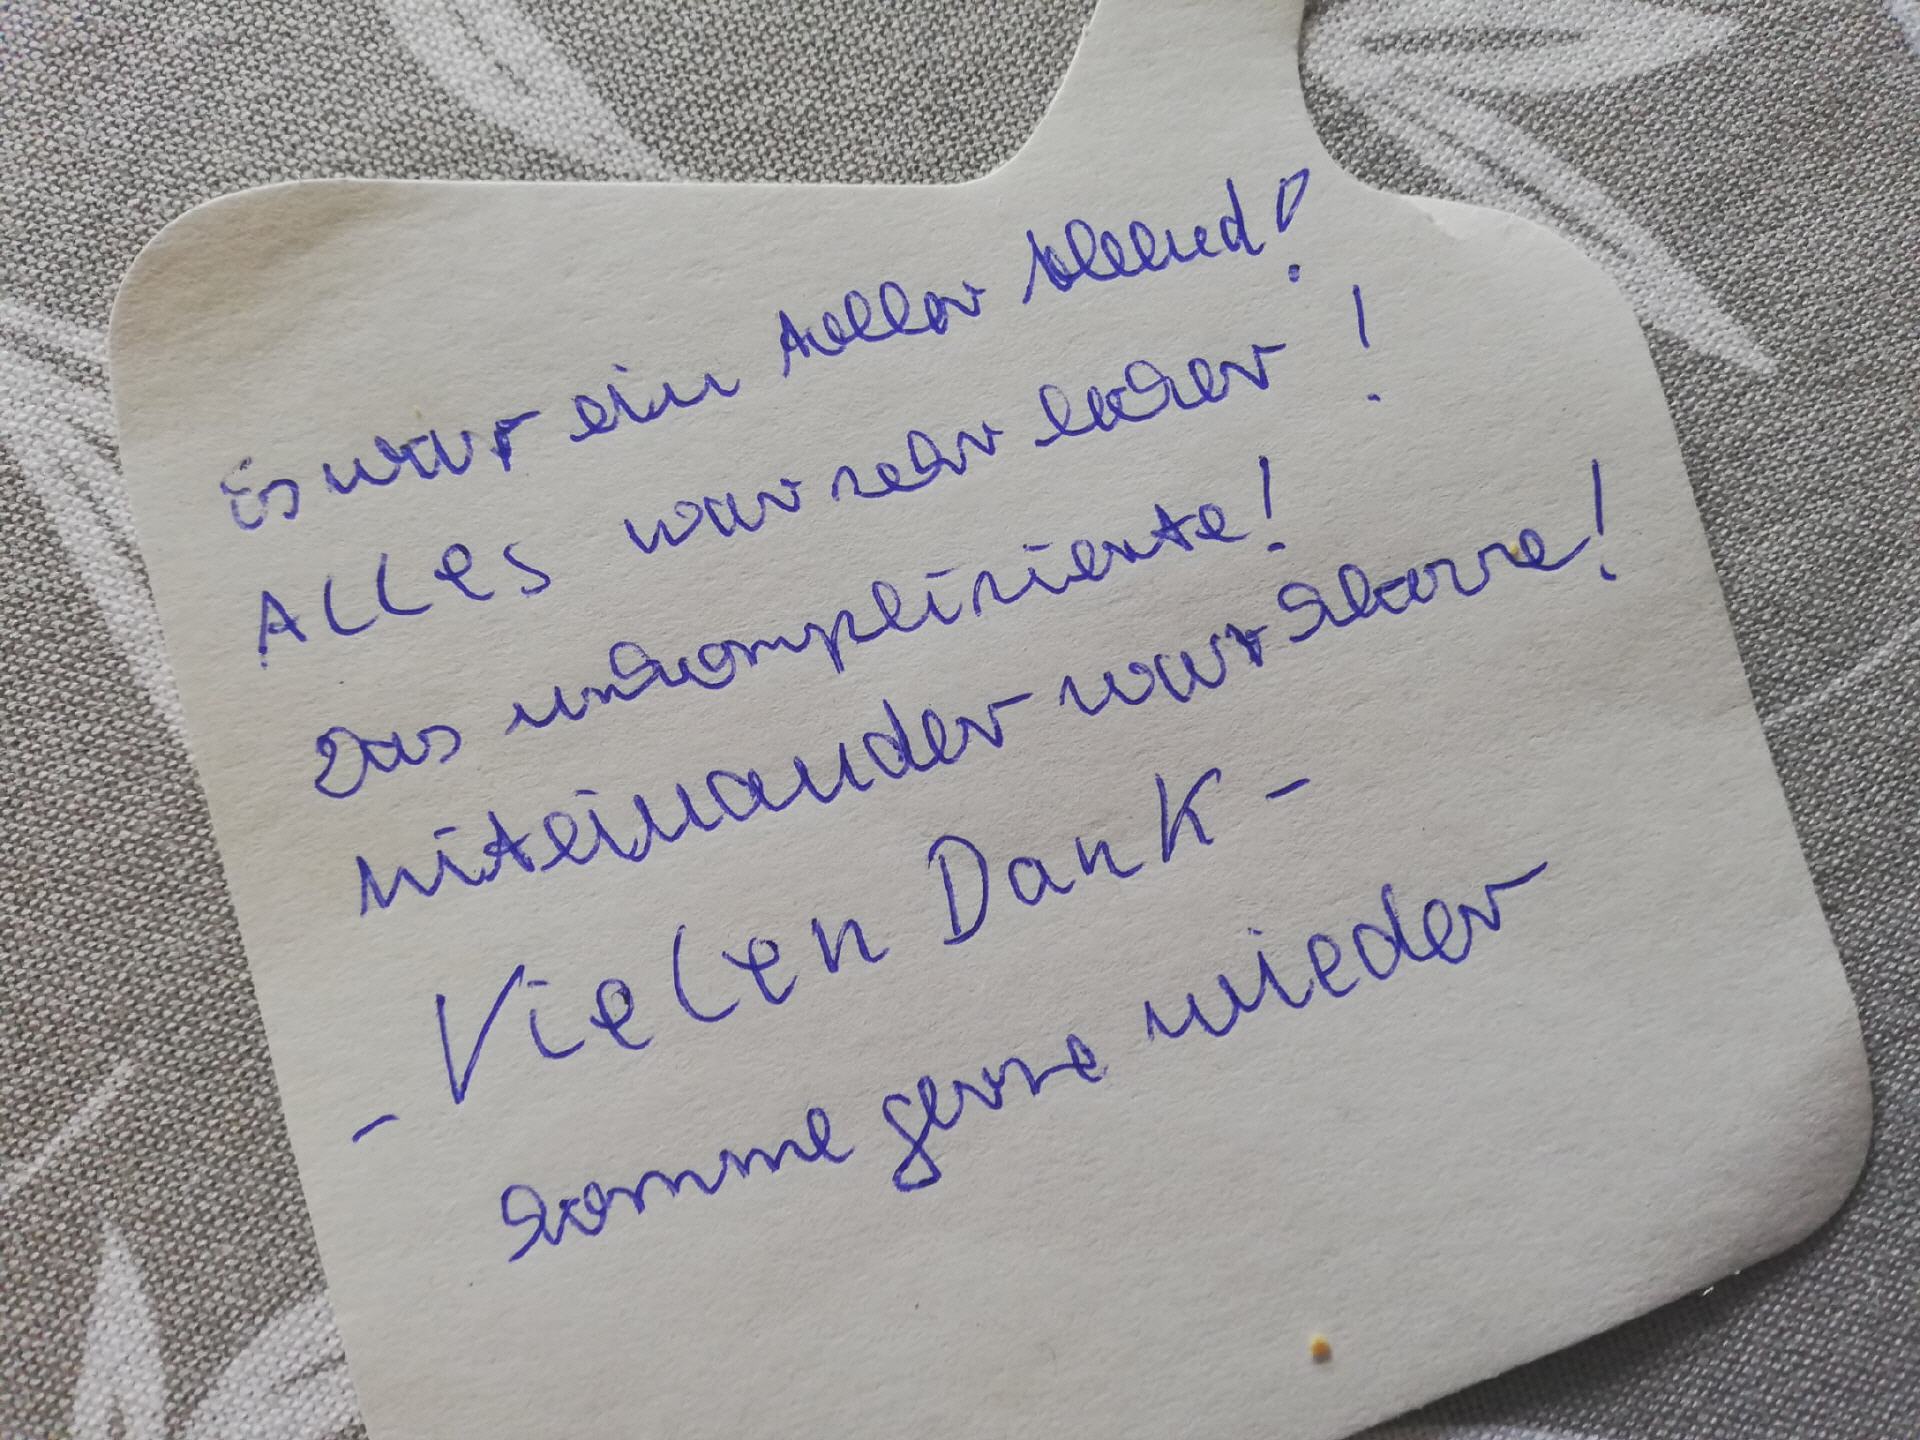 Es war ein toller Abend!
Alles war sehr lecker!
Das unkomplizierte!
miteinander war klasse!
- Vielen Dank -
komme gerne wieder